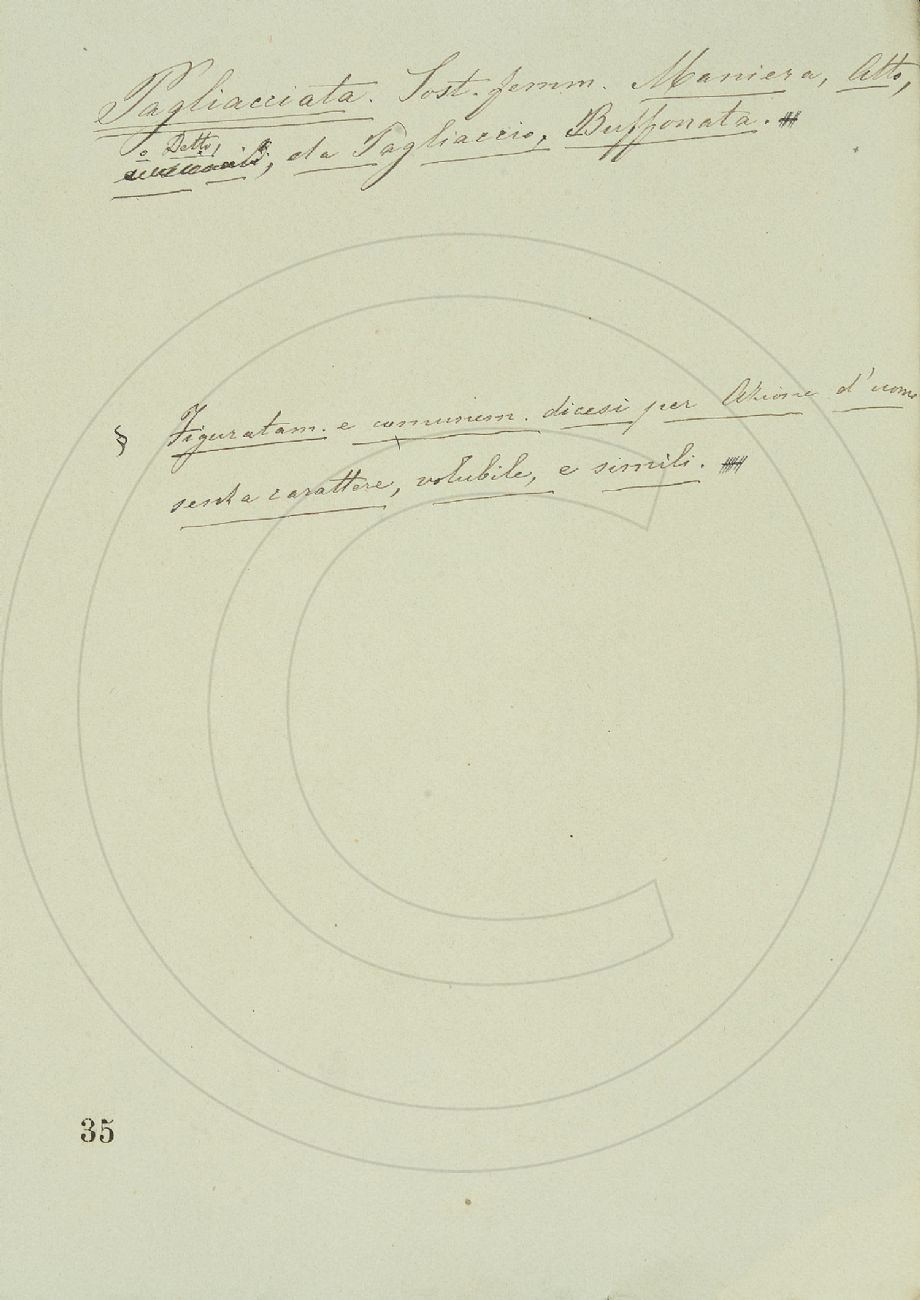 Pagliacciata. Sost. femm. Maniera, Atto,
o Detto,
da Pagliaccio, Buffonata.
§ Figuratam. e comunem. dicesi per Azione d'uomo
senza carattere, volubile, e simili.
35